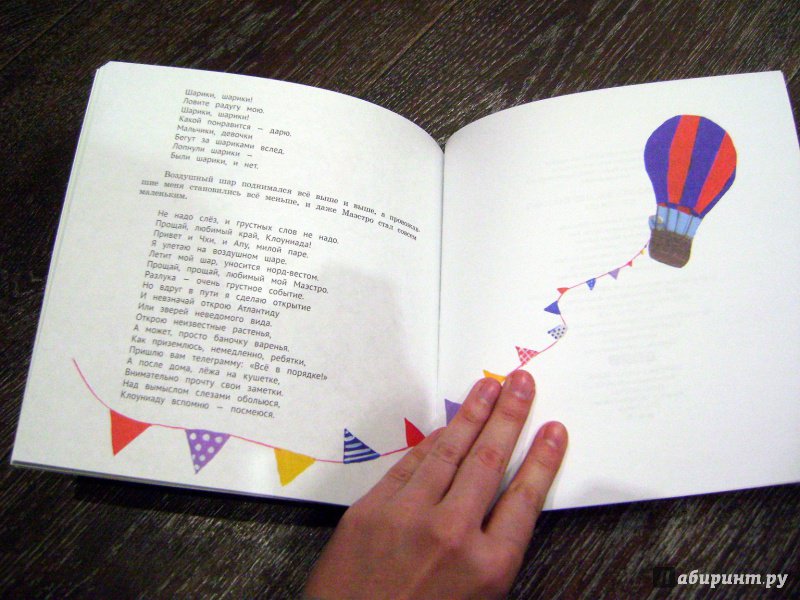 Шарики, шарики!
Ловите радугу мою.
Шарики, шарики!
Какой понравится — дарю.
Мальчики, девочки
Бегут за шариками вслед.
Лопнули шарики —
Были шарики, и нет.
Воздушный шар поднимался всё выше и выше, а провожав-
шие меня становились всё меньше, и даже Маэстро стал совсем
маленьким.
Не надо слёз, и грустных слов не надо.
Прощай, любимый край, Клоуниада!
Привет и Чхи, и Апу, милой паре.
Я улетаю на воздушном шаре.
Летит мой шар, уносится норд-вестом.
Прощай, прощай, любимый мой Маэстро.
Разлука — очень грустное событие.
Но вдруг в пути я сделаю открытие
И невзначай открою Атлантиду
Или зверей неведомого вида.
Открою неизвестные растенья,
А может, просто баночку варенья.
Как приземлюсь, немедленно, ребятки,
Пришлю вам телеграмму: «Всё в порядке!»
А после дома, лёжа на кушетке,
Внимательно прочту свои заметки.
Над вымыслом слезами обольюся,
Клоуниаду вспомню — посмеюся.
Лабиринт.ру